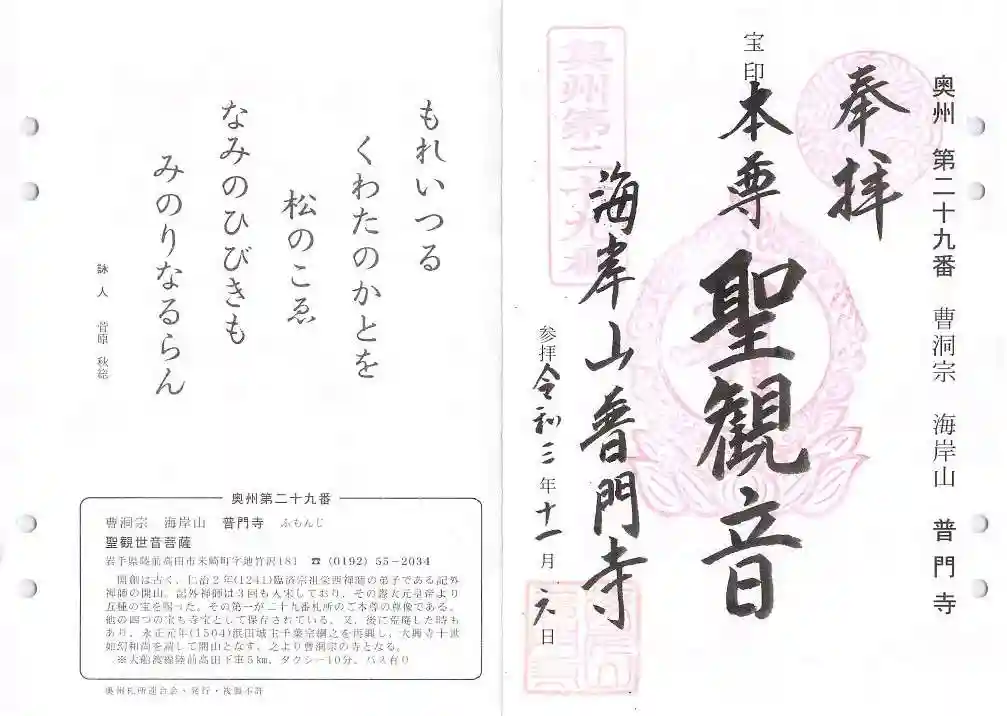 奥州 第二十九番 曹洞宗 海岸山 普門寺
奉拝
宝印
本尊 聖観音
奥州第二十九番
海岸山 普門寺
参拝 令和三年十一月六日
もれいつる
くわたのかとを
松のこゑ
なみのひびきも
みのりなるらん
詠人 菅原 秋総
奥州第二十九番
曹洞宗 海岸山 普門寺 ふもんじ
聖観世音菩薩
岩手県陸前高田市米崎町字地竹沢181 ☎(0192)55-2034
開創は古く、仁治2年(1241)臨済宗祖栄西禅師の弟子である記外
禅師の開山。記外禅師は3回も入宋しており、その際大元皇帝より
五種の宝を賜った。その第一が二十九番札所のご本尊の尊像である。
他の四つの宝も寺宝として保存されている。又、後に荒廃した時も
あり、永正元年(1504)浜田城主千葉宗綱之を再興し、大興寺十世
如幻和尚を請して開山となす。之より曹洞宗の寺となる。
※大船渡線陸前高田下車5㎞、タクシー10分、バス有り
奥州札所連合会・発行・複製不許